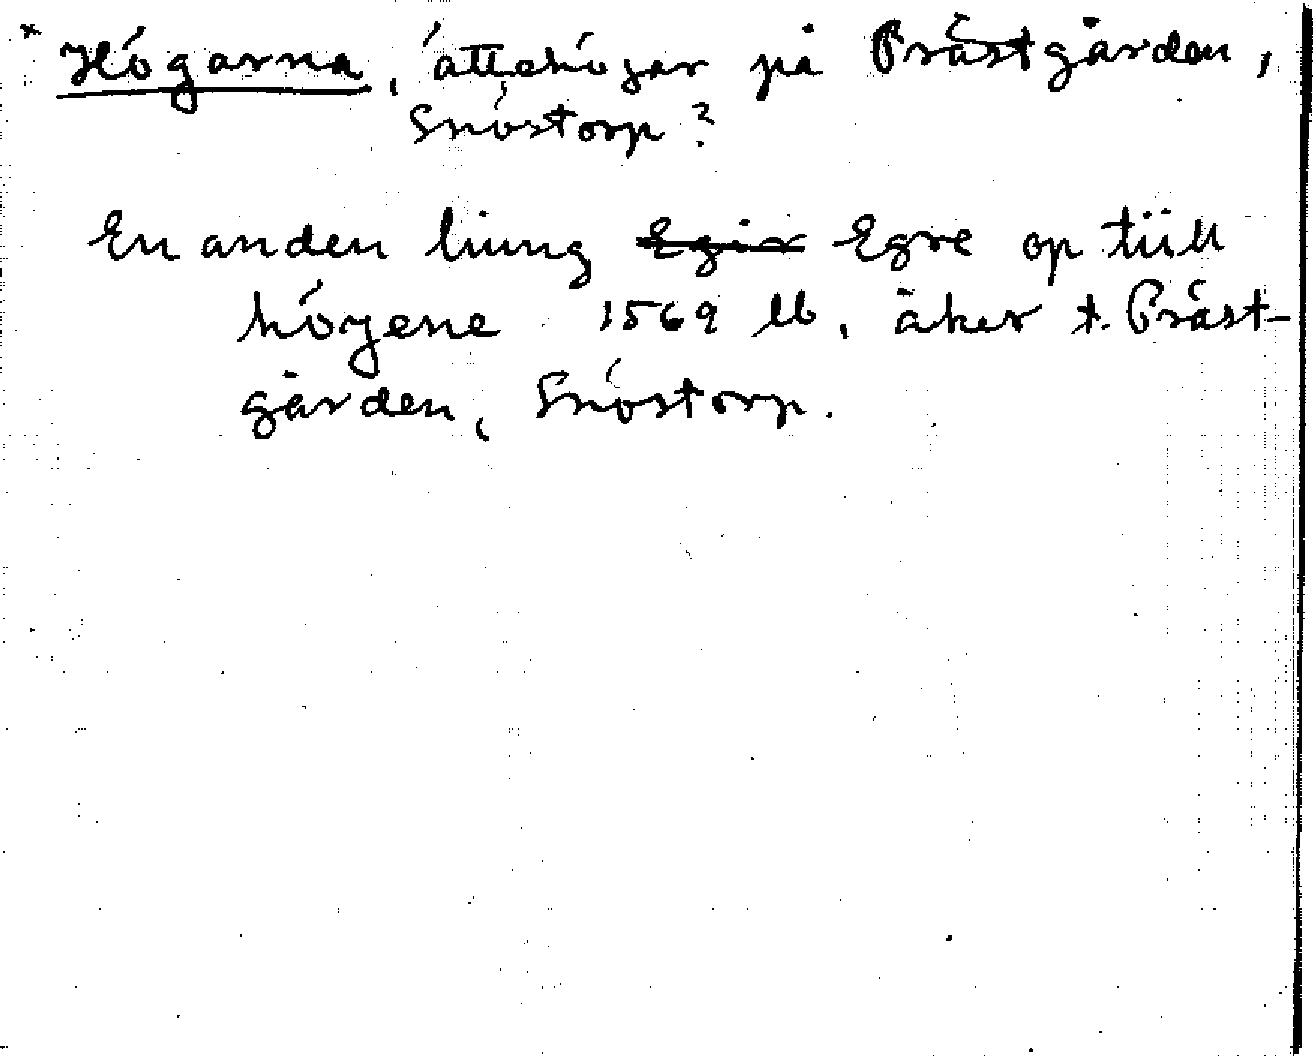 * Högarna, ättehögar på Prästgården,
Snöstorp?
En anden liung ~~Egir~~ Egre op tiill
höyene 1569 lb, åker t. Präst-
gården, Snöstorp.